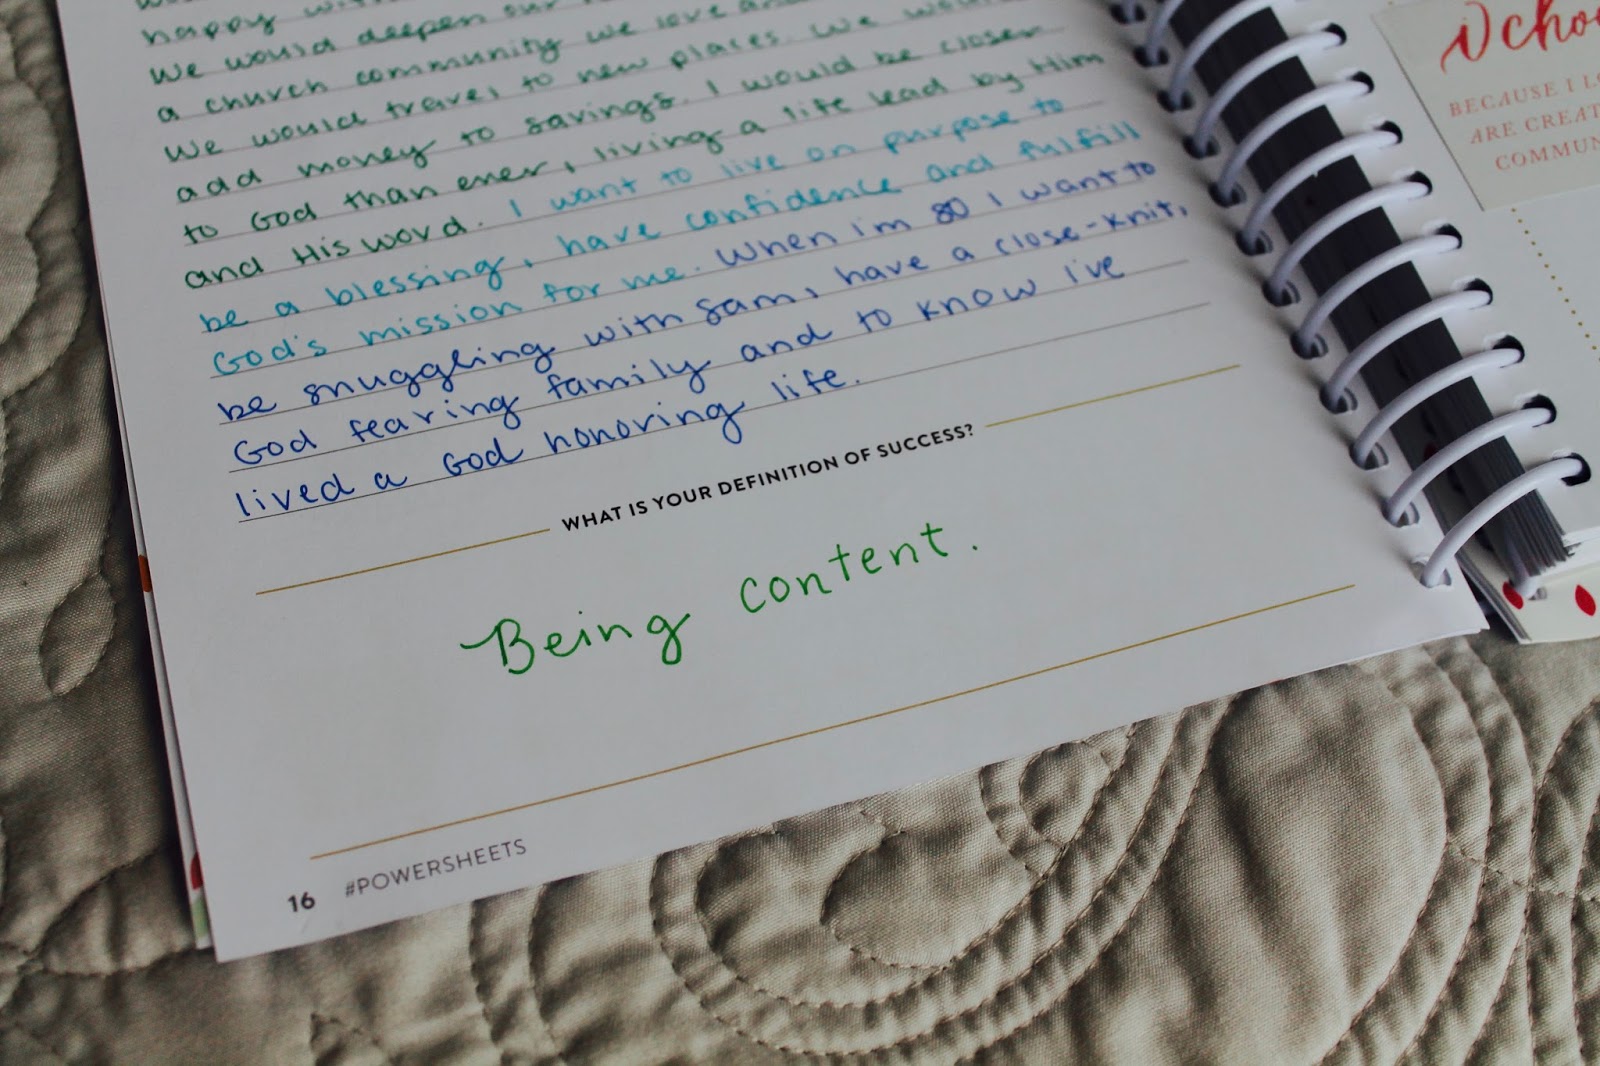 happy with
We would deepen our
a church community we love and
We would travel to new places. We would
add money to savings. I would be closer
to God than ever, living a life lead by Him
and His word. I want to live on purpose to
be a blessing, have confidence and fulfill
God's mission for me. When im 80 I want to
be snuggling with Sam, have a close-knit,
God fearing family and to know I've
lived a God honoring life.
WHAT IS YOUR DEFINITION OF SUCCESS?
Being content.
16 #POWERSHEETS
BECAUSE I
ARE